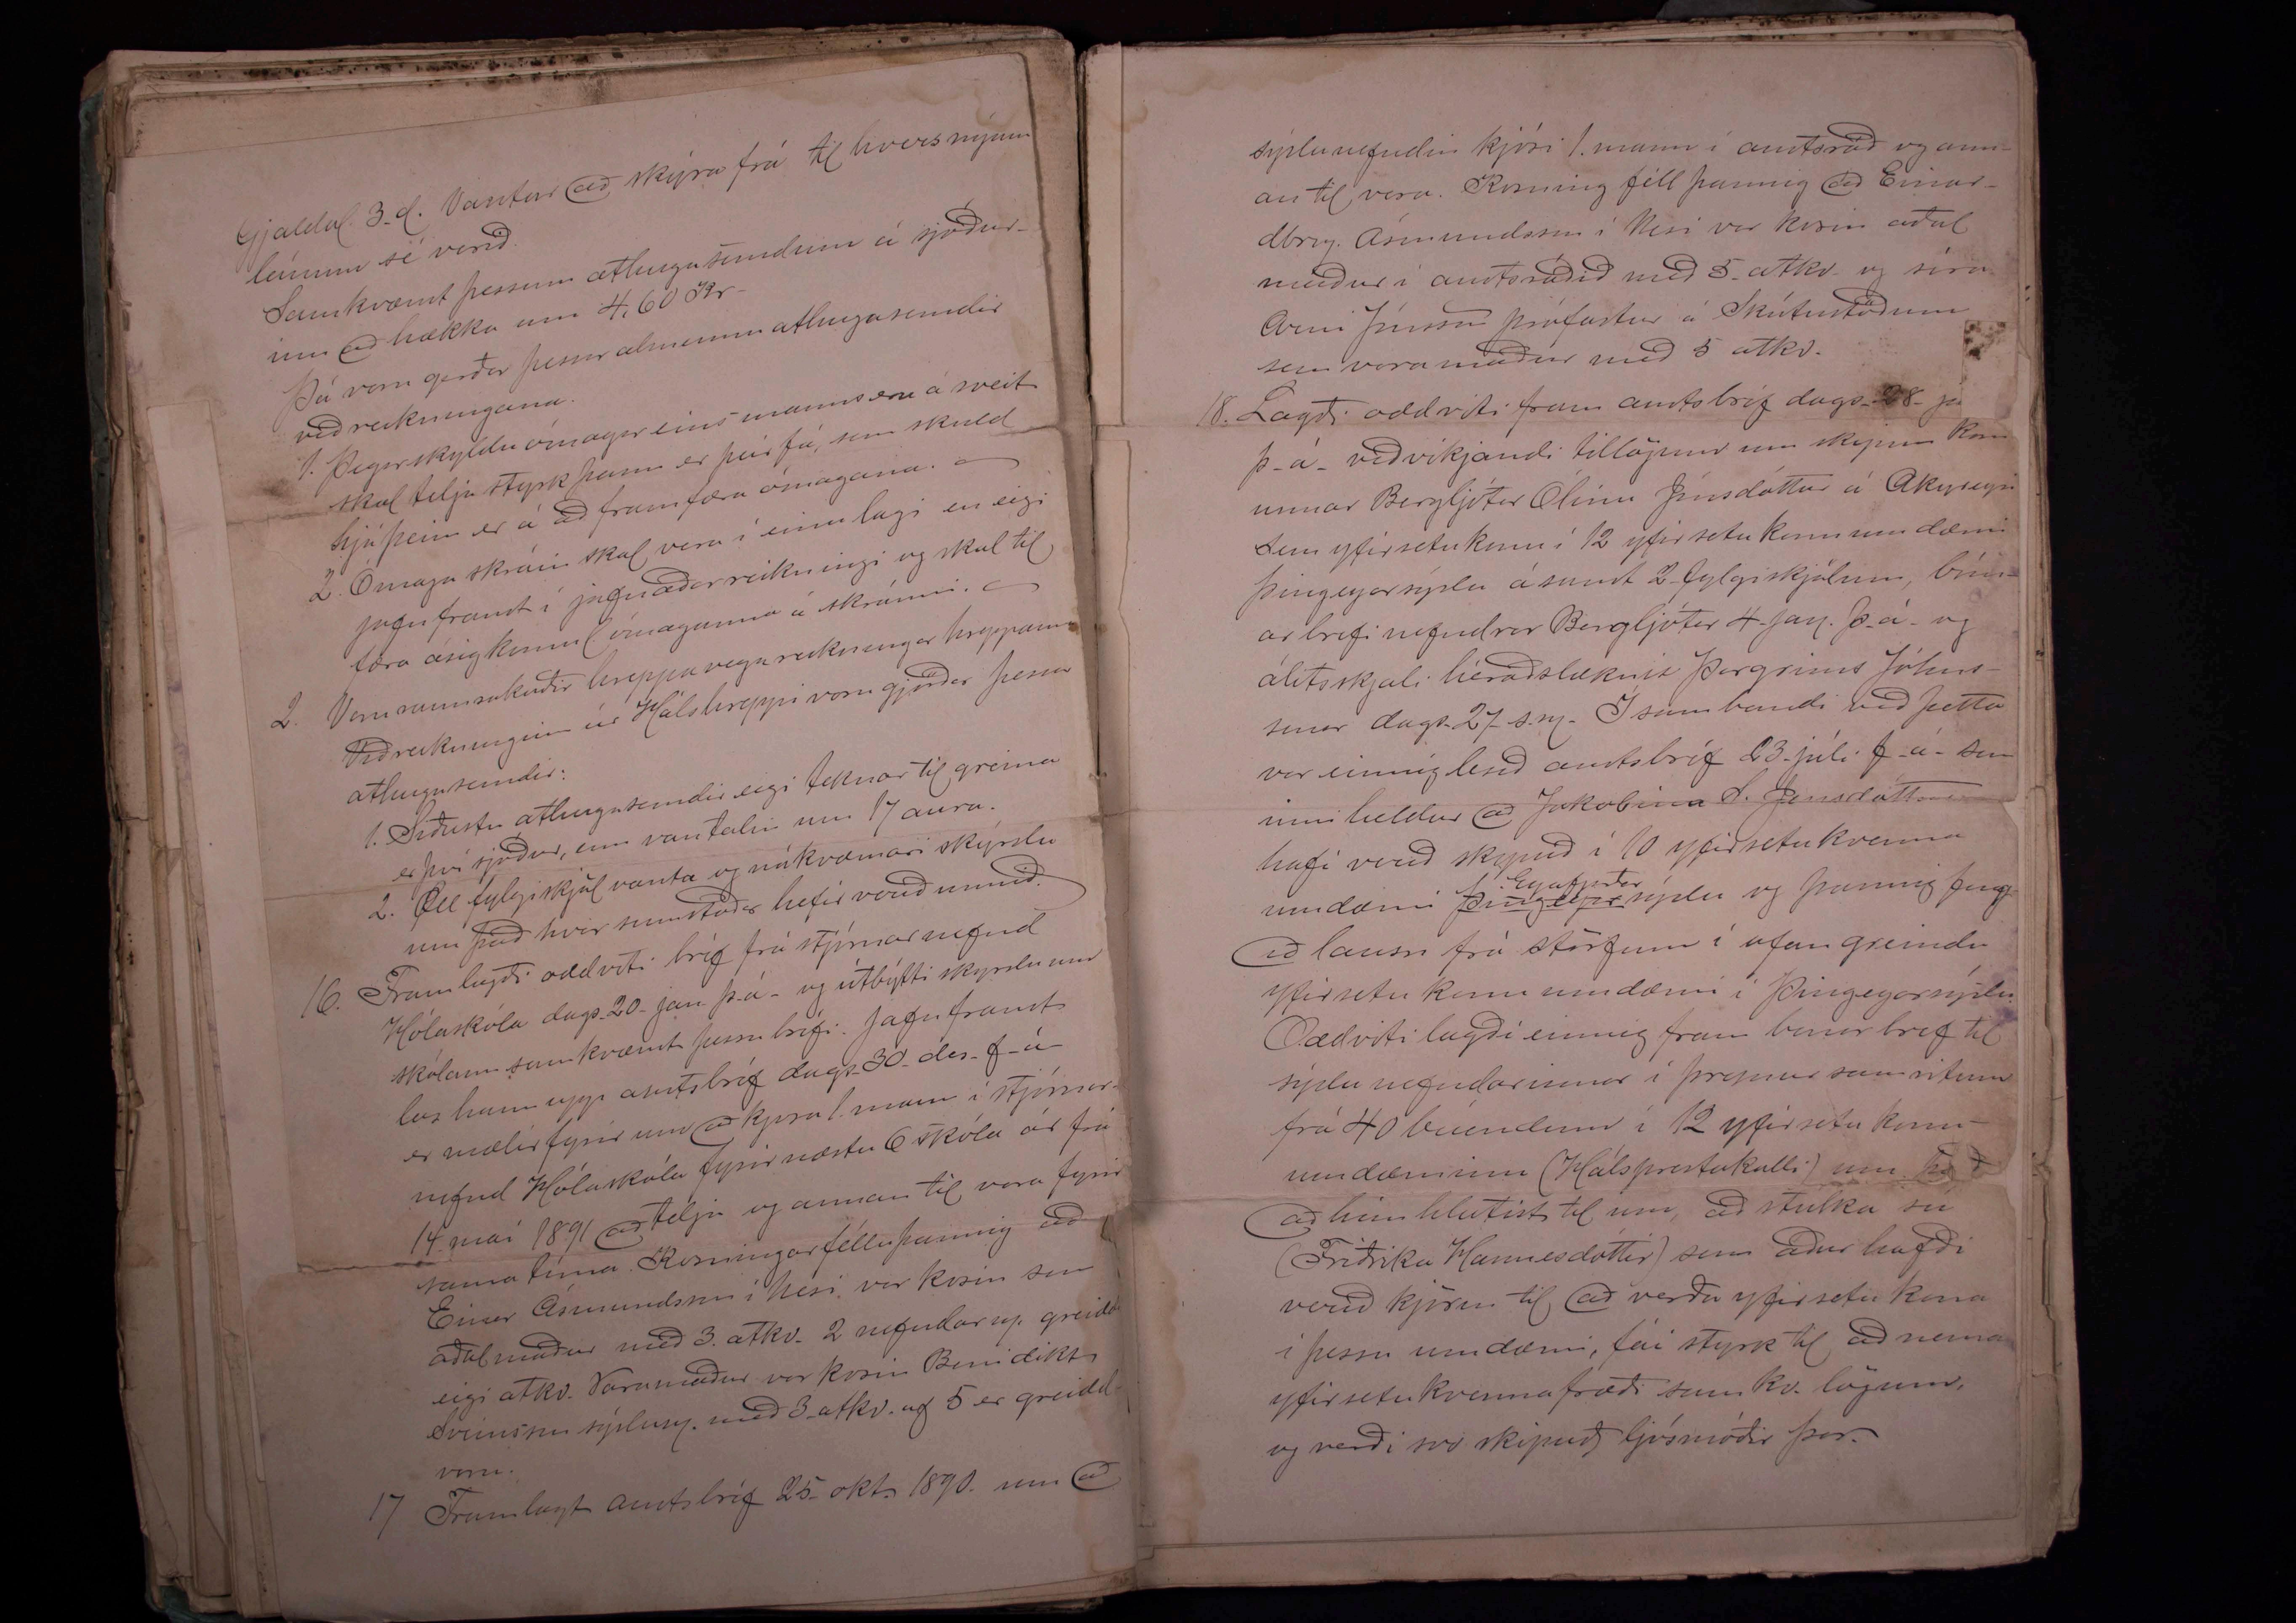 Gjaldal. 3_d. Vantar að skýra frá til hvers nýum
lánum sé varið.
Samkvæmt þessum athugasemdum á sjóður-
inn að hækka um 4,60 Kr-
Þá voru gerðar þessar almennu athugasemdir
við reikningana.
1. Þegar skyldu ómagar eins manns eru á sveit
skal telja styrk þann er þeir fá, sem skuld
hjá þeim er á að framfæra ómagana.
2. Ómaga skráin skal vera í einu lagi en eigi
jafnframt í jafnaðarreikningi og skal til
færa ásigkomul ómaganna á skránni.
2. Voru rannsakaðir hreppavegareikningar hreppanna
Við reikninginn úr Hálshreppi voru gjörðar þessar
athugasemdir:
1. Síðustu athugasemdir eigi teknar til greina
er því sjóður, enn vantalin um 17 aura.
2. Öll fylgiskjöl vanta og nákvæmari skýrslu
um það hvar sumstaðar hefir verið unnið.
16. Framlagði oddviti bréf frá stjórnarnefnd
Hólaskóla dags. 20. jan. þ-á- og útbýtti skyrslu um
skólann samkvæmt þessu bréfi. Jafnframt
las hann upp amtsbréf dags. 30. des. f-á-
er mælir fyrir um að kjosa 1. mann í stjórnar-
nefnd Hólaskóla fyrir næstu 6 skóla ár frá
14. maí 1891 að telja og annan til vara fyrir
sama tíma. Kosningar féllu þannig að
Einar Ásmundsson í Nesi var kosin sem
aðalmaður með 3. atkv. 2 nefndar m. greidd
eigi atkv. Varamaður var kosin Benidikt
Sveinsson sýslum. með 3 atkv. af 5 er greidd
voru.
17 Framlagt amtsbréf 25. okt. 1890. um að
sýslunefndin kjósi 1. mann í amtsráð og ann-
an til vara. Kosning féll þannig að Einar
dbrm. Ásmundsson í Nesi var kosin aðal
maður í amtsráðið með 5. atkv. og séra
Arni Jónsson prófastur á Skútustöðum
sem varamaður með 5 atkv.
18. Lagði oddviti fram amtsbréf dags. 28. ja
þ-á- viðvíkjandi tillögum um skipun kon
unnar Bergljótar Ólínu Jónsdóttur á Akureyri
sem yfirsetukonu í 12 yfirsetukonuumdæmi
Þingeyarsýslu ásamt 2 fylgiskjölum, bón-
arbréfi nefndrar Bergljótar 4. jan. þ-á- og
álitsskjali héraðslæknis Þorgríms Jóhns-
sonar dags. 27 s.m. Í sambandi við þetta
var einnig lesið amtsbréf 23. júlí f-á- sem
inni heldur að Jakobína S. Jensdóttir
hafi verið skipuð í 10 yfirsetukvenna
umdæmi Þingeyar Eyafjarðarsýslu og þannig feng
ið lausn frá störfum í ofangreindu
yfirsetukonuumdæmi í Þingeyarsýslu.
Oddviti lagði einnig fram bænarbréf til
sýslunefndarinnar í þremur samritum
frá 40 búendum í 12 yfirsetukonu-
umdæminu (Hálsprestakalli) um það
að hún hlutist til um, að stulka sú
(Friðrika Hannesdóttir) sem áður hafði
verið kjörin til að verða yfirsetukona
í þessu umdæmi, fái styrk til að nema
yfirsetukvennafræði samkv. lögum,
og verði svo skipuð ljósmóðir þar.